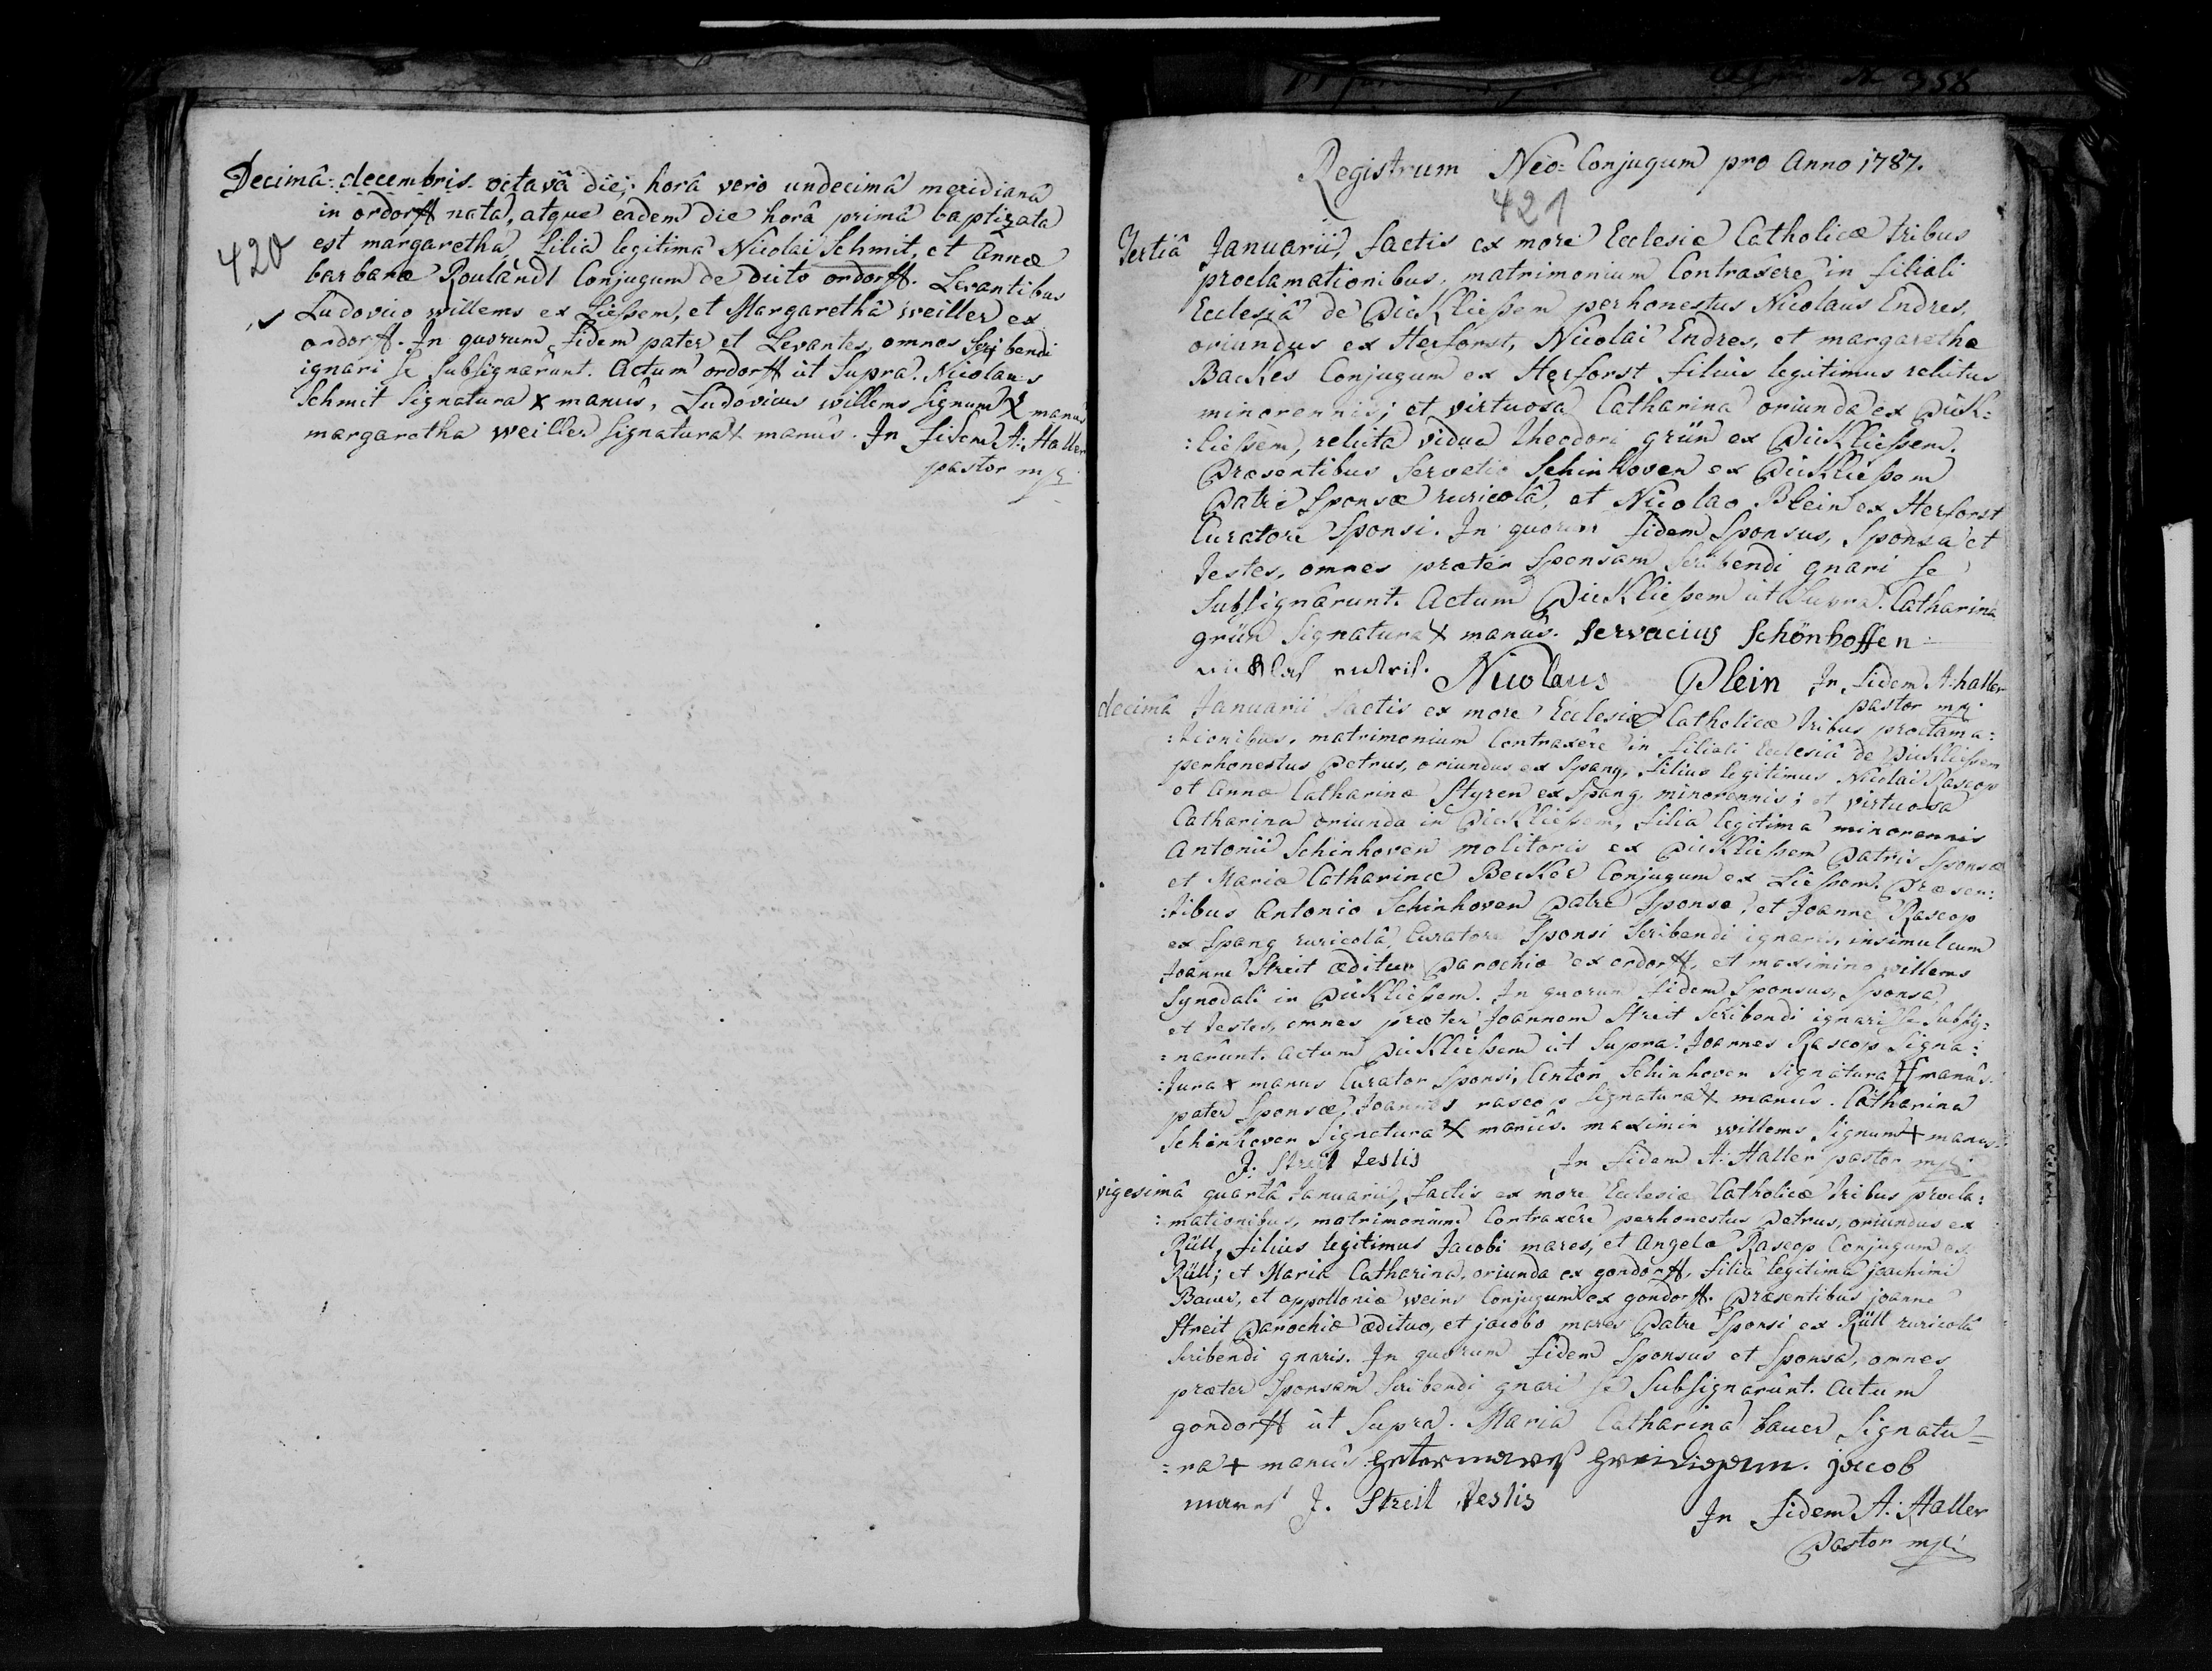 Decimâ: decembris octavâ die; horâ verò undecimâ meridianâ
in ordorff nata, atque eâdem die horâ primâ baptizata
est margaretha, filia legitima Nicolai Schmit, et Annæ
420
barbaræ Roulandt Conjugum de dicto ordorff. Levantibus
Ludovico willems ex Ließem, et Margarethâ weiller ex
ordorff. In quorum fidem pater et Levantes, omnes scribendi
ignari se subsignarûnt. Actum ordorff ût supra. Nicolaus
Schmit signatura x manûs, Ludovicus willems signum x manûs
margaretha weiller signatura x manûs. In fidem A: Haller
pastor mp
N 358
Registrum Neo-Conjugum pro Anno 1787.
421
Tertiâ Januarii, factis ex more Ecclesiæ Catholicæ tribus
proclamationibus, matrimonium Contraxêre in filiali
Ecclesiâ de Dickließem perhonestus Nicolaus Endres,
oriundus ex Herforst, Nicolai Endres, et margarethæ
Backes Conjugum ex Herforst filius legitimus relictus
minorennis; et virtuosa Catharina oriunda ex Dick:
:ließem, relicta vidua theodori grün ex Dickließem.
Præsentibus Servatio Schinhoven ex Dickließem
Patre Sponsæ ruricolâ, et Nicolao Plein ex Herforst
Curatore Sponsi. In quorum fidem Sponsus, Sponsa et
testes, omnes præter Sponsam scribendi gnari se
subsignârunt. Actum Dickließem ût supra. Catharina
grün signatura x manûs. Servacius Schönhoffen
Nicolaus Plein In fidem A: haller
pastor mp.
decimâ Januarii factis ex more Ecclesiæ Catholicæ tribus proclama:
:tionibus, matrimonium Contraxêre in filiali Ecclesiâ de Dickließem
perhonestus Petrus, oriundus ex Spang, filius legitimus Nicolai Rascop
et Annæ Catharinæ Styren ex Spang, minorennis; et virtuosa
Catharina oriunda in Dickließem, filia legitima minorennis
Antonii Schinhoven molitoris ex Dickließem Patris Sponsæ
et Mariæ Catharinæ Becker Conjugum ex Ließem. Præsen:
:tibus Antonio Schinhoven Patre Sponsæ, et Joanne Rascop
ex Spang ruricolâ, Curatore Sponsi scribendi ignaris, insimul cum
Joanne Streit ædituo Parochiæ ex ordorff, et maximino willems
Synodali in Dickließem. In quorum fidem Sponsus, Sponsa,
et testes, omnes præter Joannem Streit scribendi ignari se subsig:
:narûnt. actum Dickließem ût supra. Joannes Rascop signa:
:tura x manus Curator Sponsi, Anton Schinhoven signatura manûs.
pater Sponsæ, Joannes rascop signatura x manûs. Catharina
Schinhoven signatura x manûs. maximin willems signum x manus.
J. Streit testis In fidem A: Haller pastor mp
vigesimâ quartâ Januarii, factis ex more Ecclesiæ Catholicæ tribus procla:
:mationibus, matrimonium Contraxêre perhonestus Petrus, oriundus ex
Rüll, filius legitimus Jacobi mares, et Angelæ Rascop Conjugum ex
Rüll; et Maria Catharina, oriunda ex gondorff, filia legitima joachimi
Bauer, et appolloniæ weins Conjugum ex gondorff. Præsentibus joanne
Streit Parochiæ ædituo, et jacobo mares Patre Sponsi ex Rüll ruricolâ
scribendi gnaris. In quorum fidem Sponsus et Sponsa, omnes
præter Sponsam scribendi gnari se subsignarûnt. Actum
gondorff ût supra. Maria Catharina bauer signatu=
:ra + manûs jacob
mares J. Streit testis
In fidem A: Haller
Pastor mp